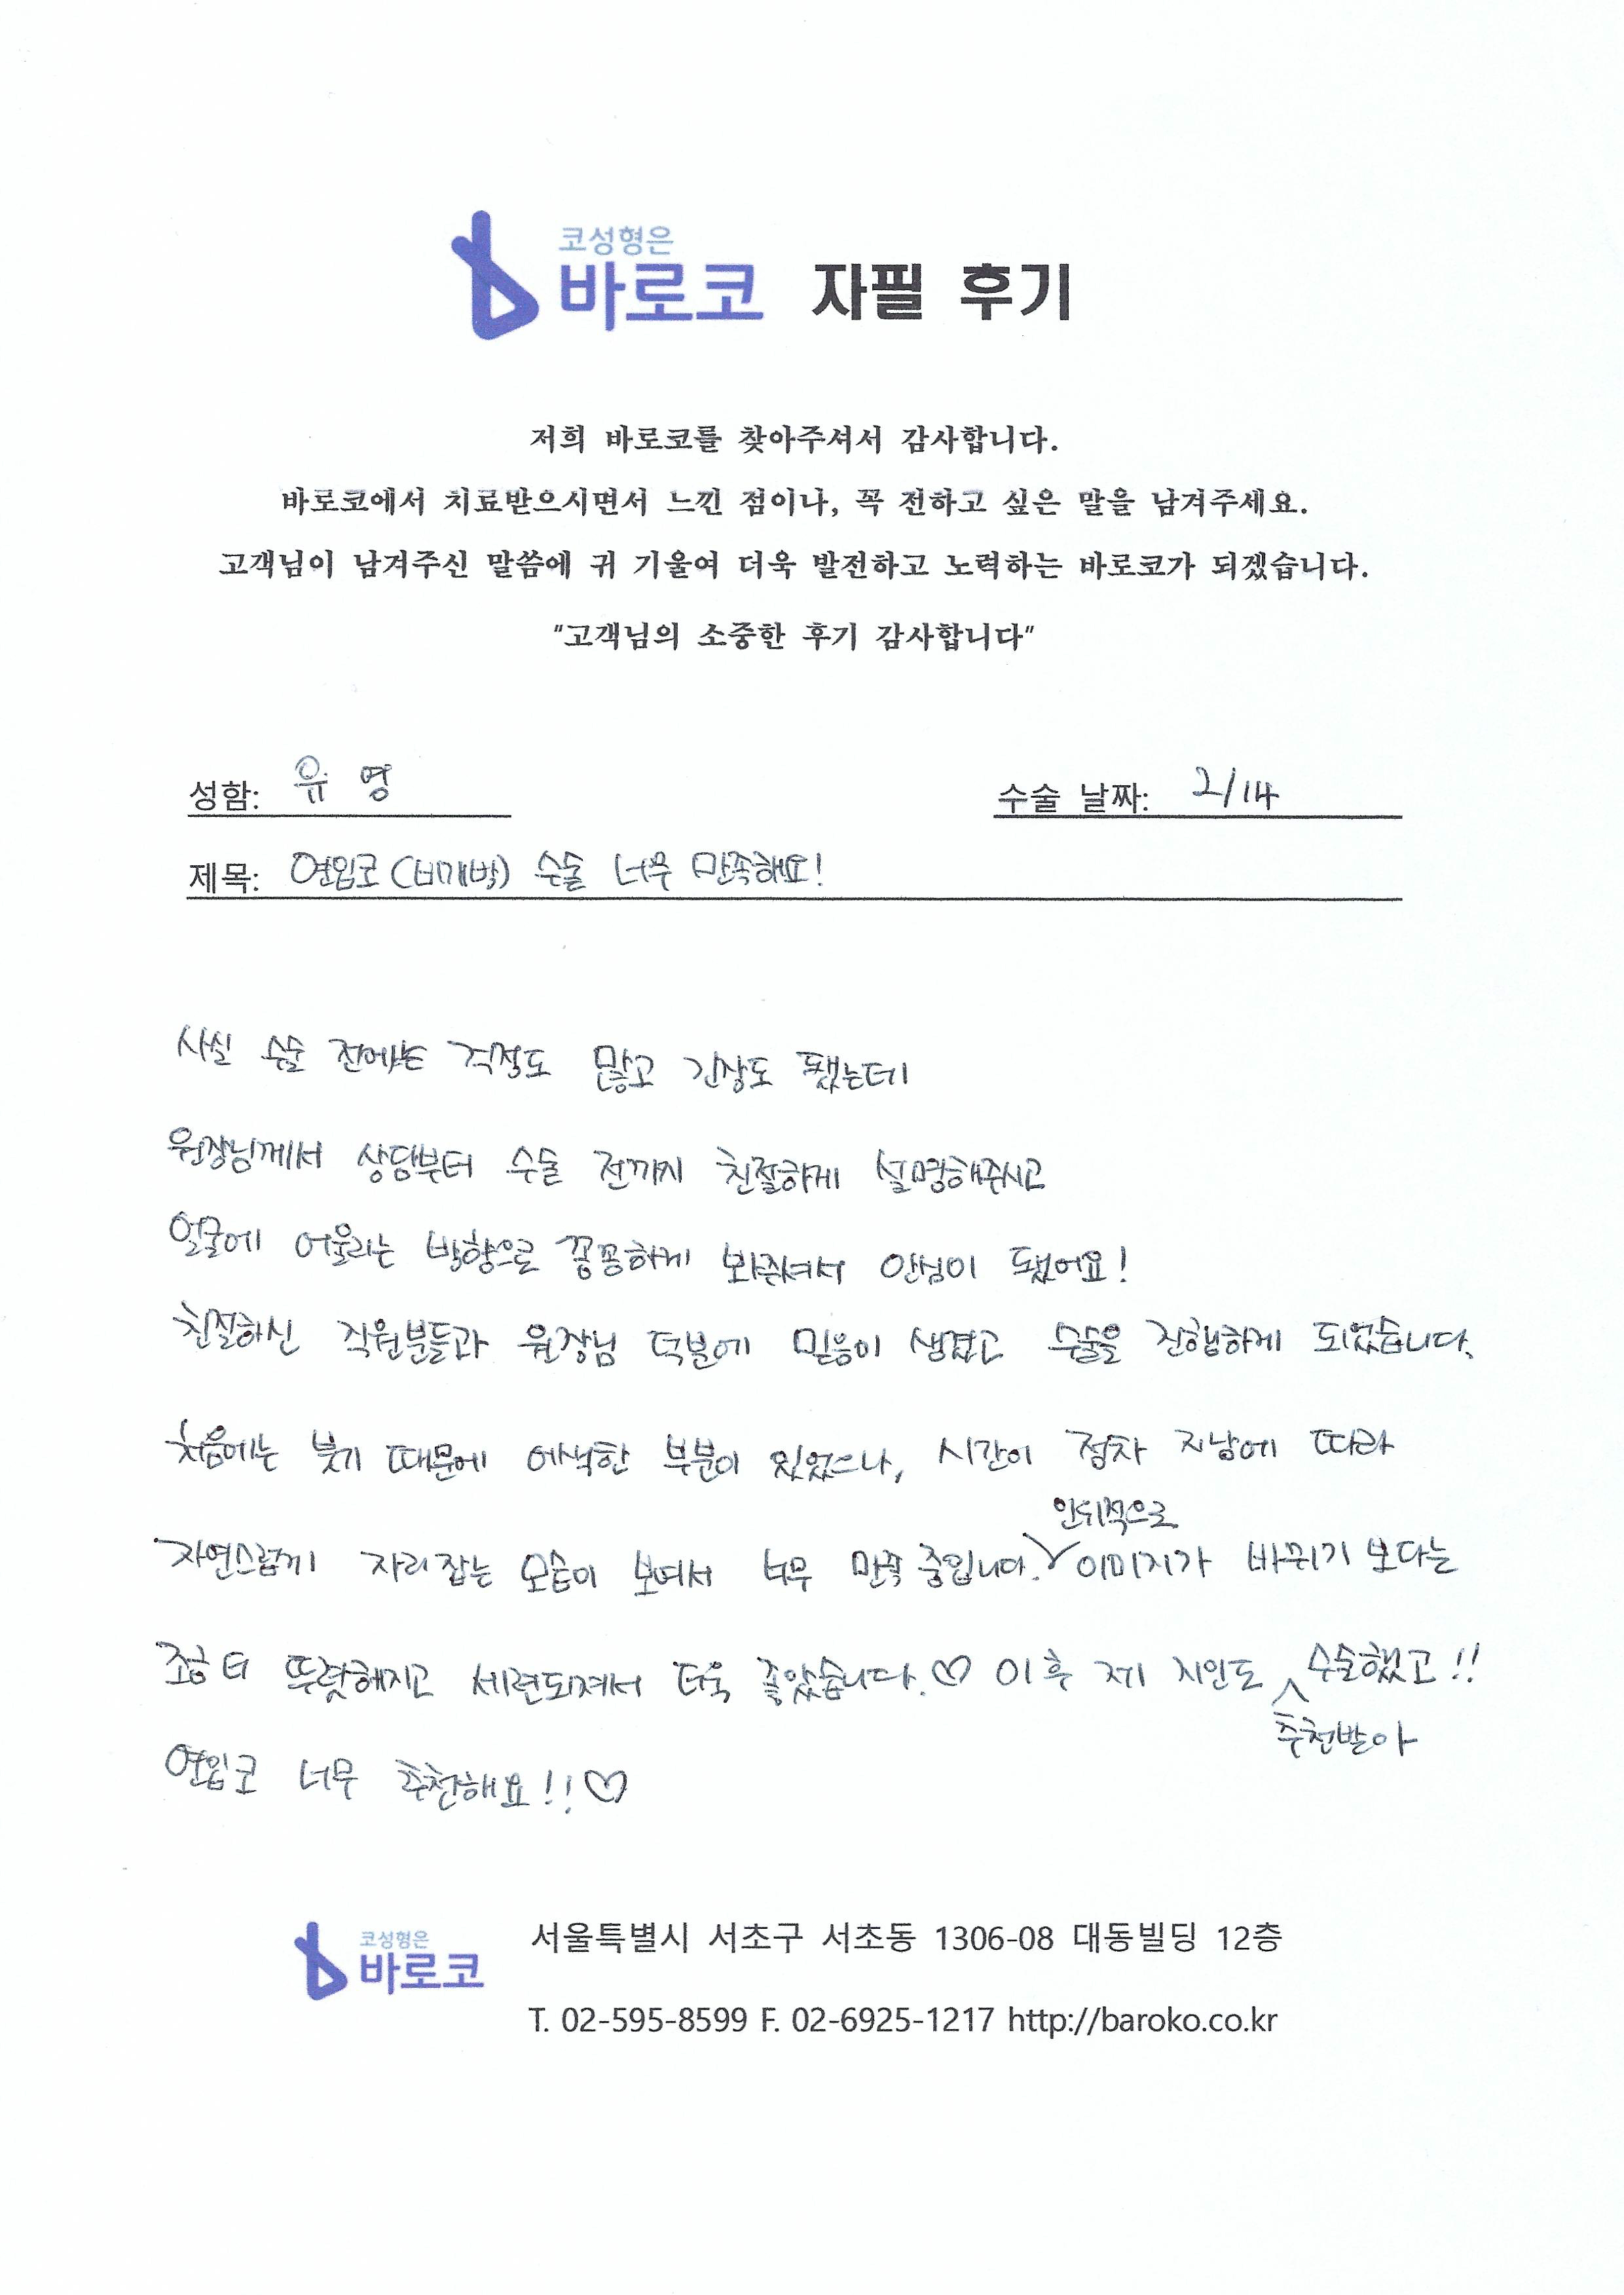 코성형은
바로코 자필 후기
저희 바로코를 찾아주셔서 감사합니다.
바로코에서 치료받으시면서 느낀 점이나, 꼭 전하고 싶은 말을 남겨주세요.
고객님이 남겨주신 말씀에 귀 기울여 더욱 발전하고 노력하는 바로코가 되겠습니다.
"고객님의 소중한 후기 감사합니다"
성함: 유 영 수술 날짜: 2/14
제목: 연입코 (비개방) 수술 너무 만족해요!
사실 수술 전에는 걱정도 많고 긴장도 됐는데
원장님께서 상담부터 수술 전까지 친절하게 설명해주시고
얼굴에 어울리는 방향으로 꽁꽁하게 봐주셔서 안심이 됐어요!
친절하신 직원분들과 원장님 덕분에 믿음이 생겼고 수술을 진행하게 되었습니다.
처음에는 붓기 때문에 어색한 부분이 있었으나, 시간이 점차 지남에 따라
자연스럽게 자리 잡는 모습이 보여서 너무 만족 중입니다. 인위적으로 이미지가 바뀌기 보다는
조금 더 뚜렷해지고 세련되져서 더욱 좋았습니다.♡ 이후 제 지인도 추천받아 수술했고!!
연입코 너무 추천해요!!♡
코성형은
바로코
서울특별시 서초구 서초동 1306-08 대동빌딩 12층
T. 02-595-8599 F. 02-6925-1217 http://baroko.co.kr